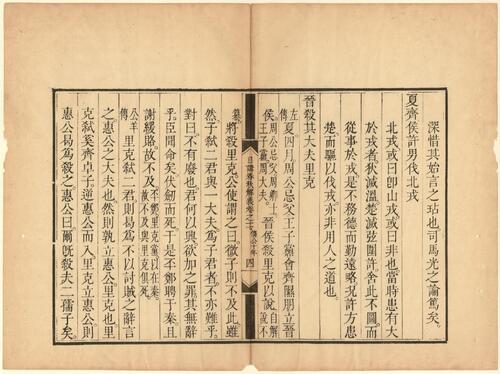 深惜其始言之玷也司馬光之論篤矣。
夏齊侯許男伐北戎
北戎或曰卽山戎或曰非也當時患有大
於戎者狄滅溫楚滅弦圍許舍此不圖而
從事於戎是不務德而勤遠略況許方患
楚而驅以伐戎亦非用人之道也。
晉殺其大夫里克
左傳夏四月周公忌父王子黨會齊隰朋立晉
侯。周公忌父周卿士王子黨周大夫。晉侯殺里克以說自解說不
日講春秋解義 僖公十年 四
篡。將殺里克公使謂之曰微子則不及此雖
然子弒二君與一大夫爲子君者不亦難乎。
對曰不有廢也君何以興欲加之罪其無辭
乎。臣聞命矣伏劍而死于是丕鄭聘于秦且
謝緩賂故不及丕鄭里克黨以在秦故不及與里克俱死。
公羊傳里克弒二君則曷爲不以討賊之辭言
之惠公之大夫也然則孰立惠公里克也里
克弒奚齊卓子逆惠公而入里克立惠公則
惠公曷爲殺之惠公曰爾既殺夫二孺子矣。